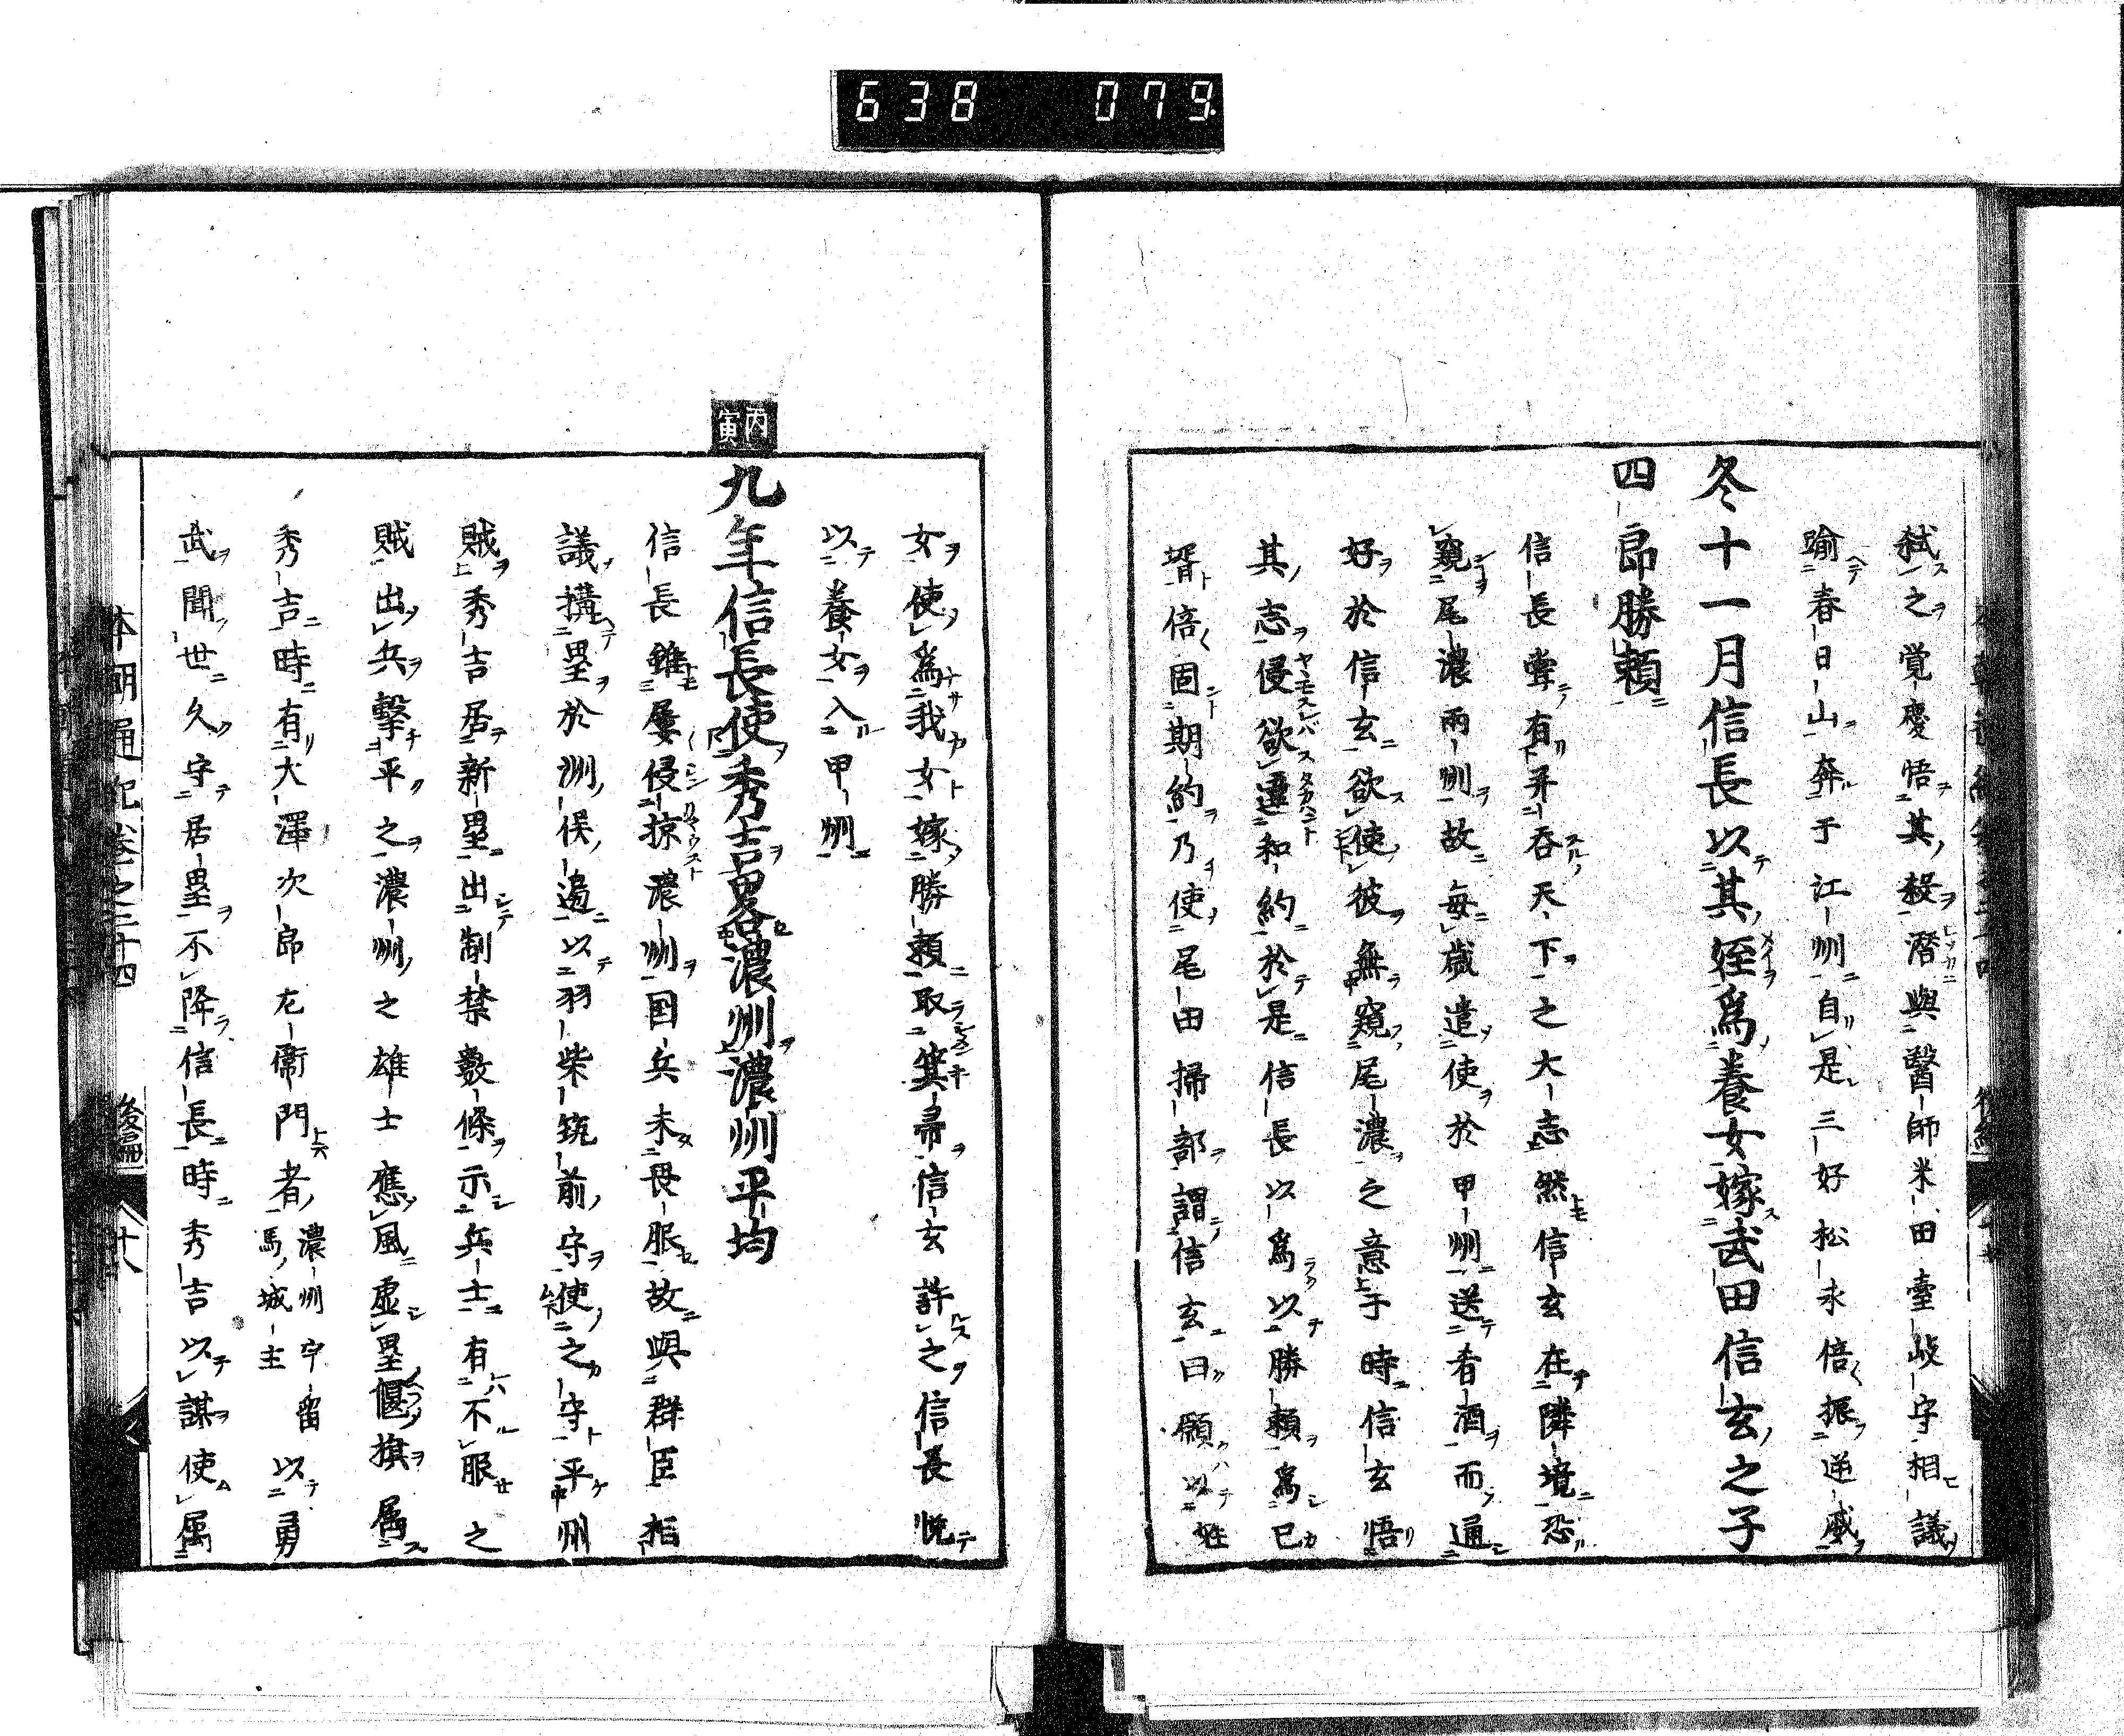 638 079
弑之覚慶悟其殺潛與醫師米田壹岐守相議
踰春日山奔于江州自是三好松永倍振逆威
冬十一月信長以其姪爲養女嫁武田信玄之子
四郎勝頼
信長嘗有并吞天下之大志然信玄在隣境恐
窺尾濃兩州故毎歳遣使於甲州送肴酒而通
好於信玄欲使彼無窺尾濃之意于時信玄悟
其志侵欲違和約於是信長以爲以勝頼爲已
壻倍固期約乃使尾田掃部謂信玄曰願以姪
女使爲我女嫁勝頼取箕帚信玄許之信長悦
以養女入甲州
丙寅
九年信長使秀吉畧濃州濃州平均
信長雖屢侵掠濃州国兵未畏服故與群臣相
議搆塁於洲俣邉以羽柴筑前守使之守平州
賊秀吉居新塁出制禁數條示兵士有不服之
賊出兵撃平之濃州之雄士應風虚塁偃旗属
秀吉時有大澤次郎左衞門者濃州宇留馬城主以勇
武聞世久守居塁不降信長時秀吉以謀使属
本朝通紀卷之二十四 後編 十八